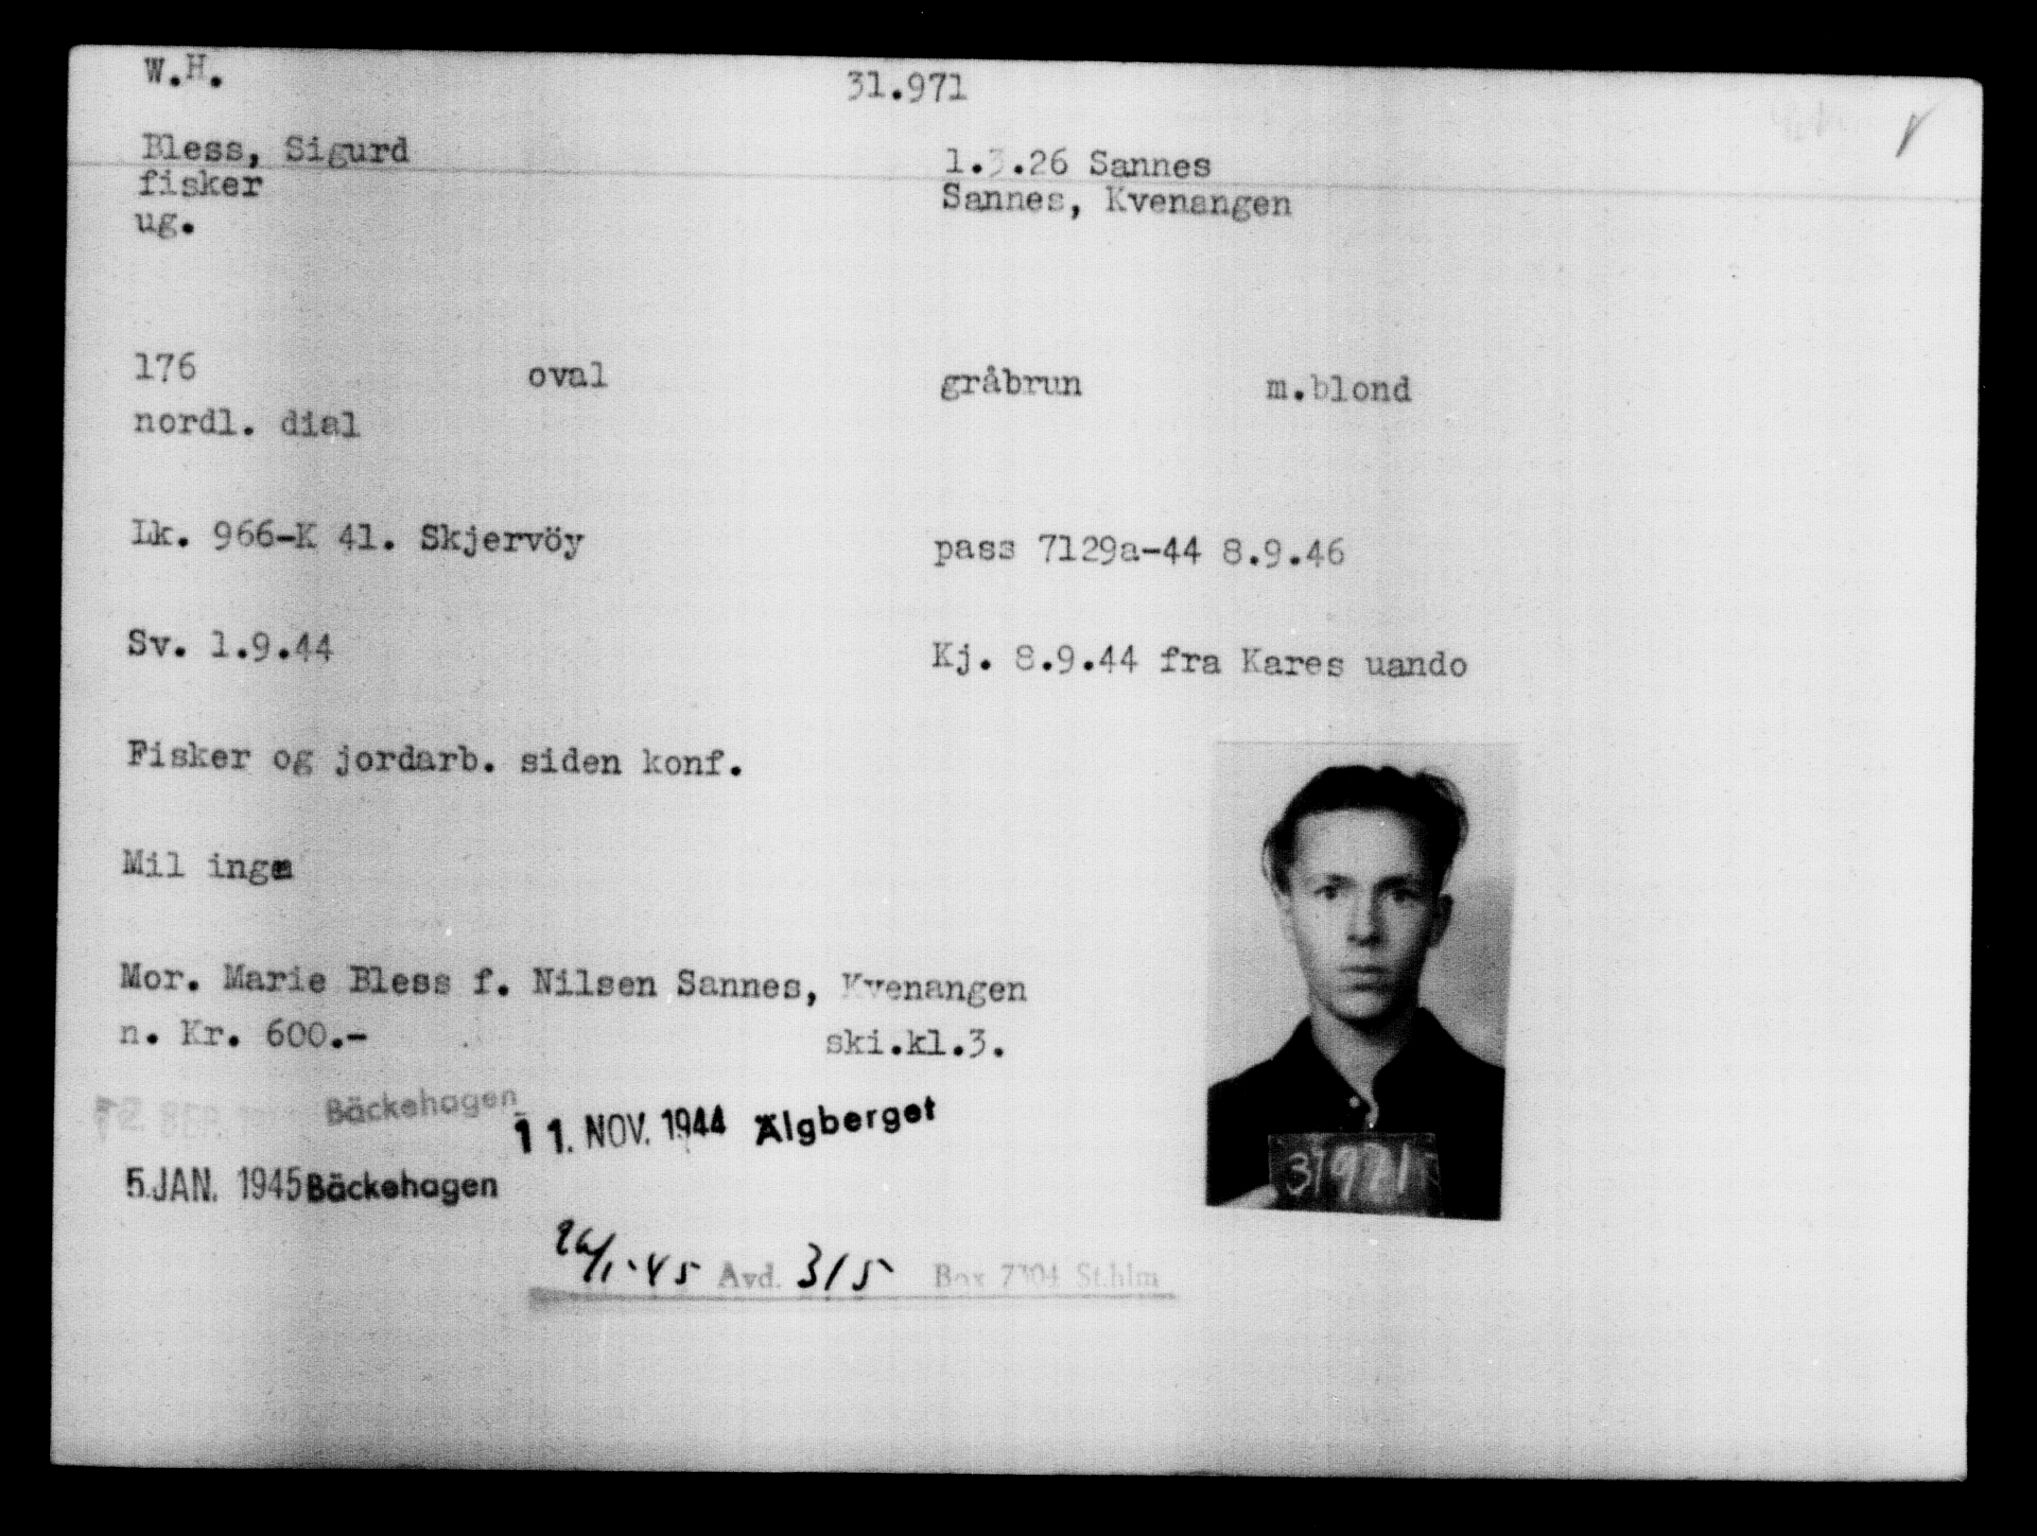 W.H. 31.971
Bless, Sigurd 1.3.26 Sannes
fisker Sannes, Kvenangen
ug.
176 oval gråbrun m.blond
nordl. dial
Lk. 966-K 41. Skjervöy pass 7129a-44 8.9.46
Sv. 1.9.44 Kj. 8.9.44 fra Kares uando
Fisker og jordarb. siden konf.
Mil ingen
Mor. Marie Bless f. Nilsen Sannes, Kvenangen
n. Kr. 600.- ski.kl.3.
12. SEP. Bäckehagen
11. NOV. 1944 Älgberget
5. JAN. 1945 Bäckehagen
26/1-45 Avd. 315 Box 7304 St.hlm
31971